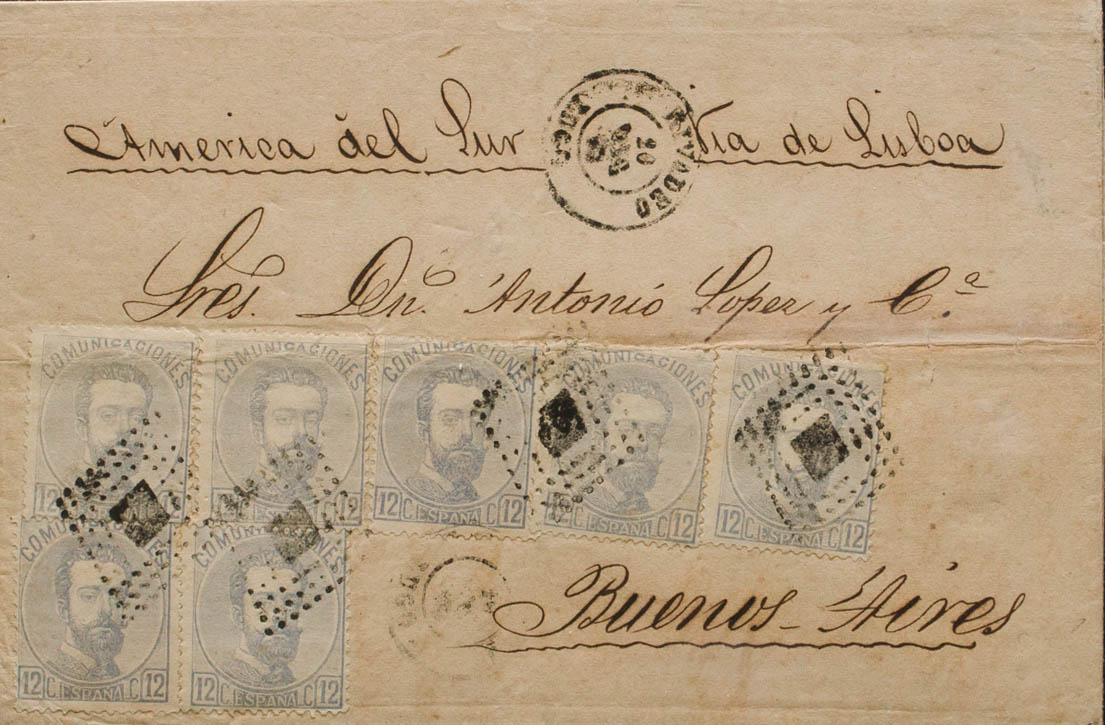 America del Sur Via de Lisboa
RIVADEO
20
Sres. Dn. Antonio Lopez y C.ª
COMUNICACIONES COMUNICACIONES COMUNICACIONES COMUNICACIONES
12 C. ESPAÑA C 12 C. ESPAÑA C 12 12 C. ESPAÑA C 12 C. ESPAÑA C 12 12 C. ESPAÑA C 12
COMUNICACIONES COMUNICACIONES
Buenos-Aires
12 C. ESPAÑA C 12 12 C. ESPAÑA C 12